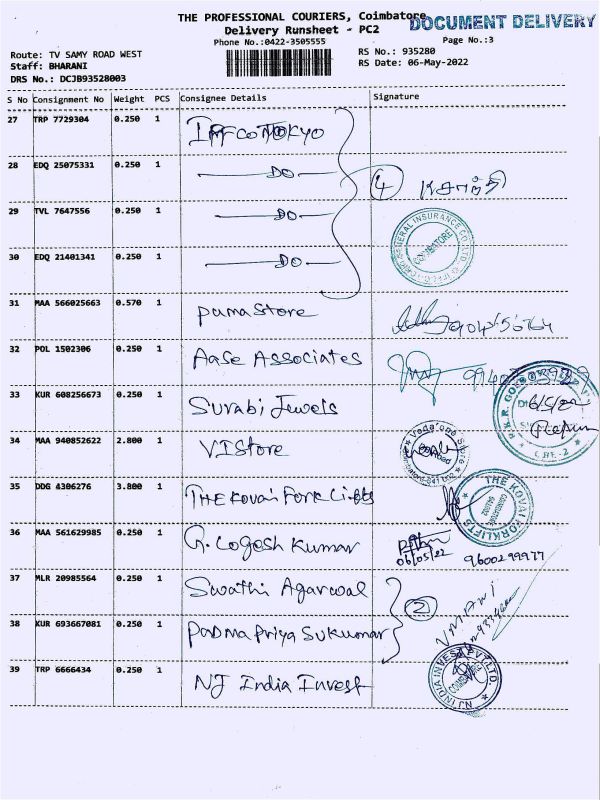 THE PROFESSIONAL COURIERS, Coimbatore
DOCUMENT DELIVERY
Delivery Runsheet - PC2
Phone No.:0422-3505555
Page No.:3
Route: TV SAMY ROAD WEST
RS No.: 935280
Staff: BHARANI
RS Date: 06-May-2022
DRS No.: DCJB93528003
S No Consignment No Weight PCS Consignee Details Signature
27 TRP 7729304 0.250 1 TOKYO
28 EDQ 25075331 0.250 1 DO
4 சாந்தி
29 TVL 7647556 0.250 1 DO
GENERAL INSURANCE CO. LTD.
COIMBATORE
30 EDQ 21401341 0.250 1 DO
31 MAA 566025663 0.570 1 puma store
32 POL 1502306 0.250 1 Aase Associates
33 KUR 608256673 0.250 1 Surabi Jewels
6/5/22
CBE-2
34 MAA 940852622 2.800 1 VI Store
35 DDG 4306276 3.800 1 THE Kovai Fork Lifts
THE KOVAI FORKLIFTS
COIMBATORE
36 MAA 561629985 0.250 1 G. Logesh Kumar
06/05/22 9600299977
37 MLR 20985564 0.250 1 Swathi Agarwal
2
38 KUR 693667081 0.250 1 Padma Priya Sukumar
V MANI
39 TRP 6666434 0.250 1 NJ India Invest
NJ INDIA INVEST PVT. LTD.
COIMBATORE